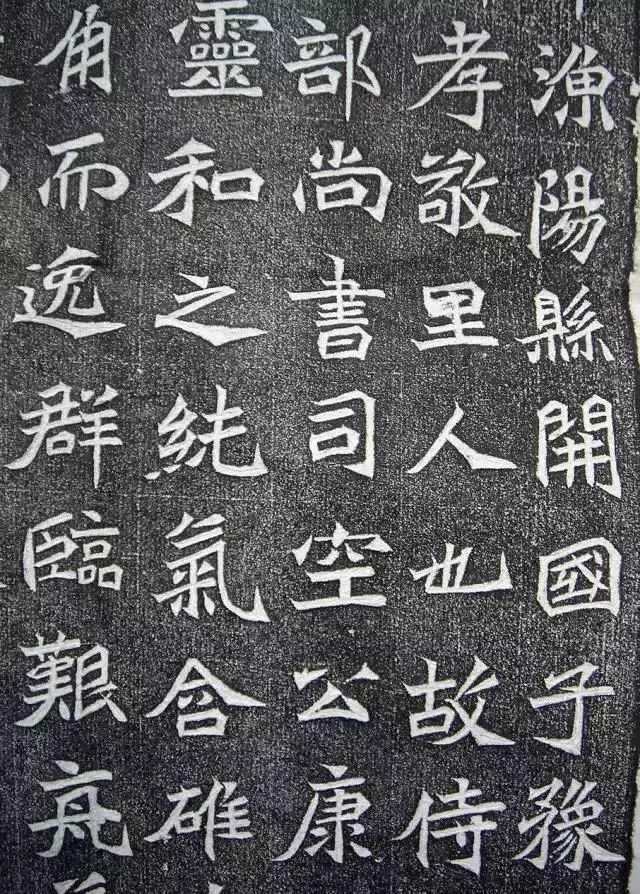 漁陽縣開國子豫
孝敬里人也故侍
部尚書司空公康
靈和之純氣含確
角而逸群臨艱